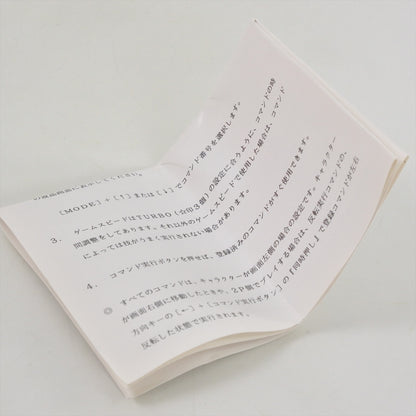 の製品画面に表示してください。
[MODE]+[↑]または[↓]でコマンド番号を選択します。
3. ゲームスピードはTURBO(☆印3個)の設定に合うように、コマンドの時
間調整をしてあります。それ以外のゲームスピードで使用した場合は、コマンド
によっては技がうまく実行されない場合があります。
4. コマンド実行ボタンを押せば、登録済みのコマンドがすぐ使用できます。
◎ すべてのコマンドは、キャラクターが画面左側の場合の設定です。キャラクター
が画面右側に移動したときや、2P側でプレイする場合は、反転実行コマンドの、
方向キーの[←]+[コマンド実行ボタン]の『同時押し』で登録コマンドが左右
反転した状態で実行されます。